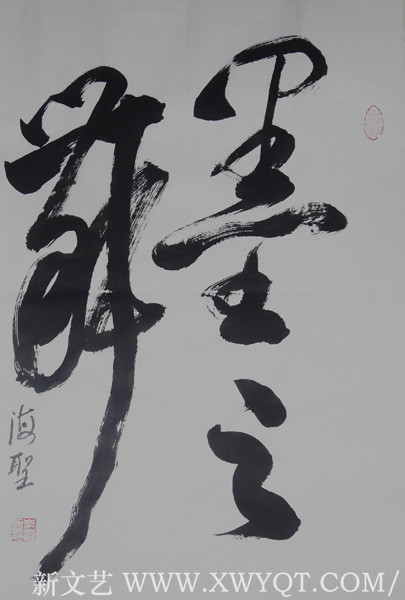 墨之
舞
海聖
新文艺 WWW.XWYQT.COM/